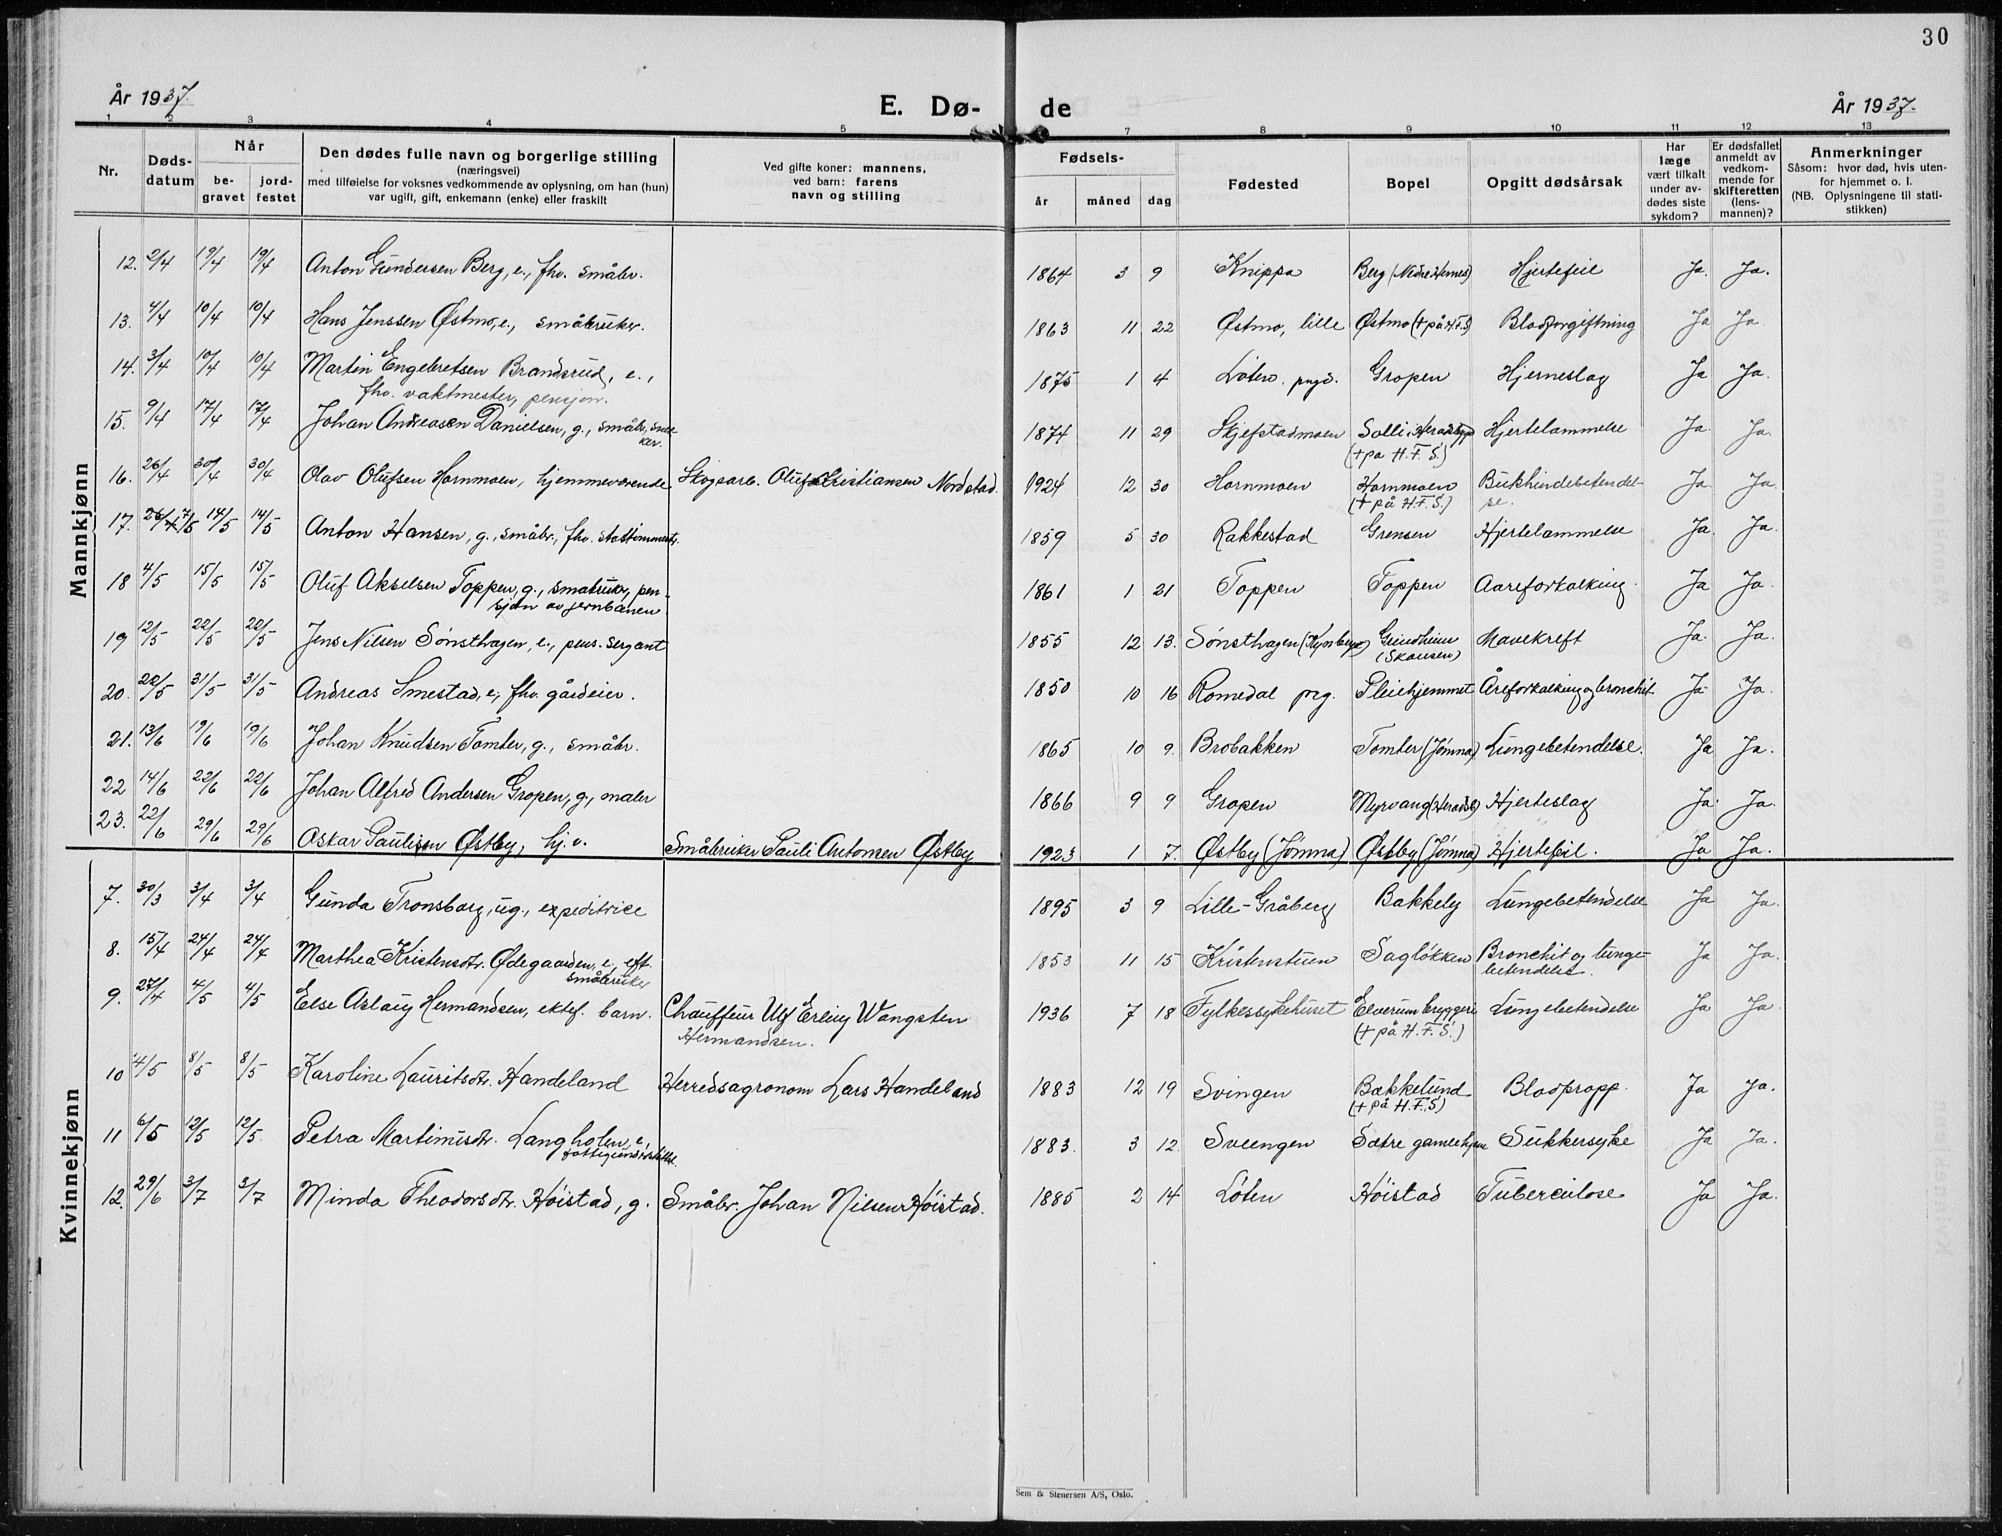 30
År 1937.
E. Dø- de
År 1937.
1 2 3 4 5 7 8 9 10 11 12 13
Nr.
Døds-
datum
Når
be-
gravet
jord-
festet
Den dødes fulle navn og borgerlige stilling
(næringsvei)
med tilføielse for voksnes vedkommende av oplysning, om han (hun)
var ugift, gift, enkemann (enke) eller fraskilt
Ved gifte koner: mannens,
ved barn: farens
navn og stilling
Fødsels-
år måned dag
Fødested
Bopel
Opgitt dødsårsak
Har
læge
vært tilkalt
under av-
dødes siste
sykdom?
Er dødsfallet
anmeldt av
vedkom-
mende for
skifteretten
(lens-
mannen)?
Anmerkninger
Såsom: hvor død, hvis uten-
for hjemmet o. l.
(NB. Oplysningene til stati-
stikken)
Mannkjønn
12. 2/4 19/4 19/4 Anton Gundersen Berg, e., fhv. småbr. 1864 3 9 Knippa Berg (Nedre Hernes) Hjertefeil Ja. Ja.
13. 4/4 10/4 10/4 Hans Jenssen Østmo, e., småbruker. 1863 11 22 Østmo, lille Østmo (+ på H.F.S) Blodforgiftning Ja Ja
14. 3/4 10/4 10/4 Martin Engebretsen Brandsrud, e., 1875 1 4 Løten prgd. Gropen Hjerneslag Ja Ja.
fhv. vaktmester, pensjon.
15. 9/4 17/4 17/4 Johan Andreasen Danielsen, g., småbr, sned- 1874 11 29 Skjefstadmoen Solli i Heradsbygd Hjertelammelse Ja. Ja.
ker. (+ på H.F.S.)
16. 26/4 30/4 30/4 Olav Olufsen Hornmoen, hjemmeværende Skogsarb. Oluf Kristiansen Nordstad. 1924 12 30 Hornmoen Hornmoen Bukhindebetendel- Ja Ja.
(+ på H.F.S.) se.
17. 7/5 14/5 14/5 Anton Hansen, g., småbr., fhv. 1859 5 30 Rakkestad Grensen Hjertelammelse Ja. Ja.
18 4/5 15/5 15/5 Oluf Akselsen Toppen, g., småbruker, pen- 1861 1 21 Toppen Toppen Aareforkalking Ja Ja.
sjon av jernbanen.
19 12/5 22/5 22/5 Jens Nilsen Sønsthagen, e., pens. sergant 1855 12 13. Sønsthagen (Kynberget) Grindheim Mavekreft Ja. Ja.
(Skansen)
20. 22/5 31/5 31/5 Andreas Smestad, e., fhv. gårdeier. 1850 10 16 Romedal prg. Pleiehjemmet Åreforkalking og bronchit. Ja Ja.
21. 13/6 19/6 19/6 Johan Knudsen Tomter, g., småbr. 1865 10 9. Brobakken Tomter (Jømna) Lungebetendelse. Ja Ja.
22 14/6 22/6 22/6 Johan Alfred Andersen Gropen, g., maler 1866 9 9 Gropen Myrvang (Heradsb) Hjerteslag Ja. Ja.
23. 22/6 29/6 29/6 Oskar Paulisen Østby, hj.v. Småbruker Pauli Antonsen Østby 1923 1 7. Østby (Jømna) Østby (Jømna) Hjertefeil. Ja Ja.
Kvinnekjønn
7. 30/3 3/4 3/4 Gunda Tronsborg, ug., expeditrice 1895 3 9 Lille-Gråberg Bakkely Lungebetendelse Ja Ja.
8. 15/4 24/4 24/4 Marthea Kristensdtr. Ødegaarden, e. eft. 1853 11 15 Kristenstuen Sagløkken Bronchit og lunge- Ja Ja.
småbruker betendelse.
9. 27/4 4/5 4/5 Else Aslaug Hermandsen, ektef. barn. Chauffeur Ulf Erling Wangsten 1936 7 18 Fylkessykehuset Elverum bryggeri Lungebetendelse Ja Ja
Hermandsen. (+ på H.F.S.)
10 4/5 8/5 8/5 Karoline Lauritsdtr. Handeland Herredsagronom Lars Handeland 1883 12 19 Svingen Bækkelund Blodpropp. Ja Ja.
(+ på H.F.S)
11 6/5 12/5 12/5 Petra Martinusdtr. Langholen, e. 1883. 3 12. Sveengen Sætre gamlehjem Sukkersyke Ja Ja.
12. 29/6 3/7 3/7 Minda Theodorsdtr. Høistad, g. Småbr. Johan Nilsen Høistad. 1885 2 14 Løten Høistad Tuberculose Ja Ja.
Sem & Stenersen A/S, Oslo.